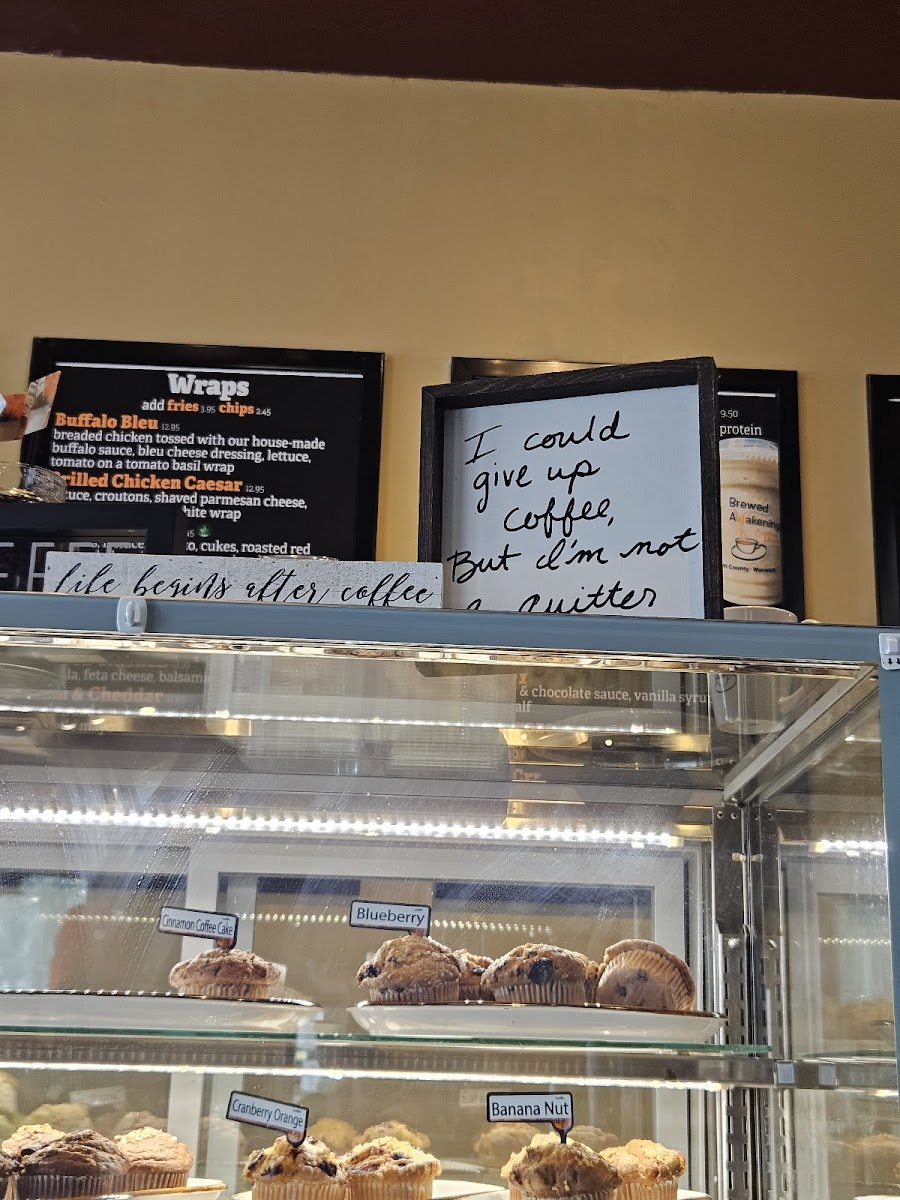 Wraps
add fries 3.95 chips 2.45
Buffalo Bleu 12.95
breaded chicken tossed with our house-made
buffalo sauce, bleu cheese dressing, lettuce,
tomato on a tomato basil wrap
Grilled Chicken Caesar 12.95
croutons, shaved parmesan cheese,
wrap
cukes, roasted red
life begins after coffee
I could
give up
coffee,
But I'm not
a Quitter
9.50
protein
Brewed
Awakening
County: Warwick
feta cheese,
& Cheddar
& chocolate sauce, vanilla
Cinnamon Coffee Cake
Blueberry
Cranberry Orange
Banana Nut